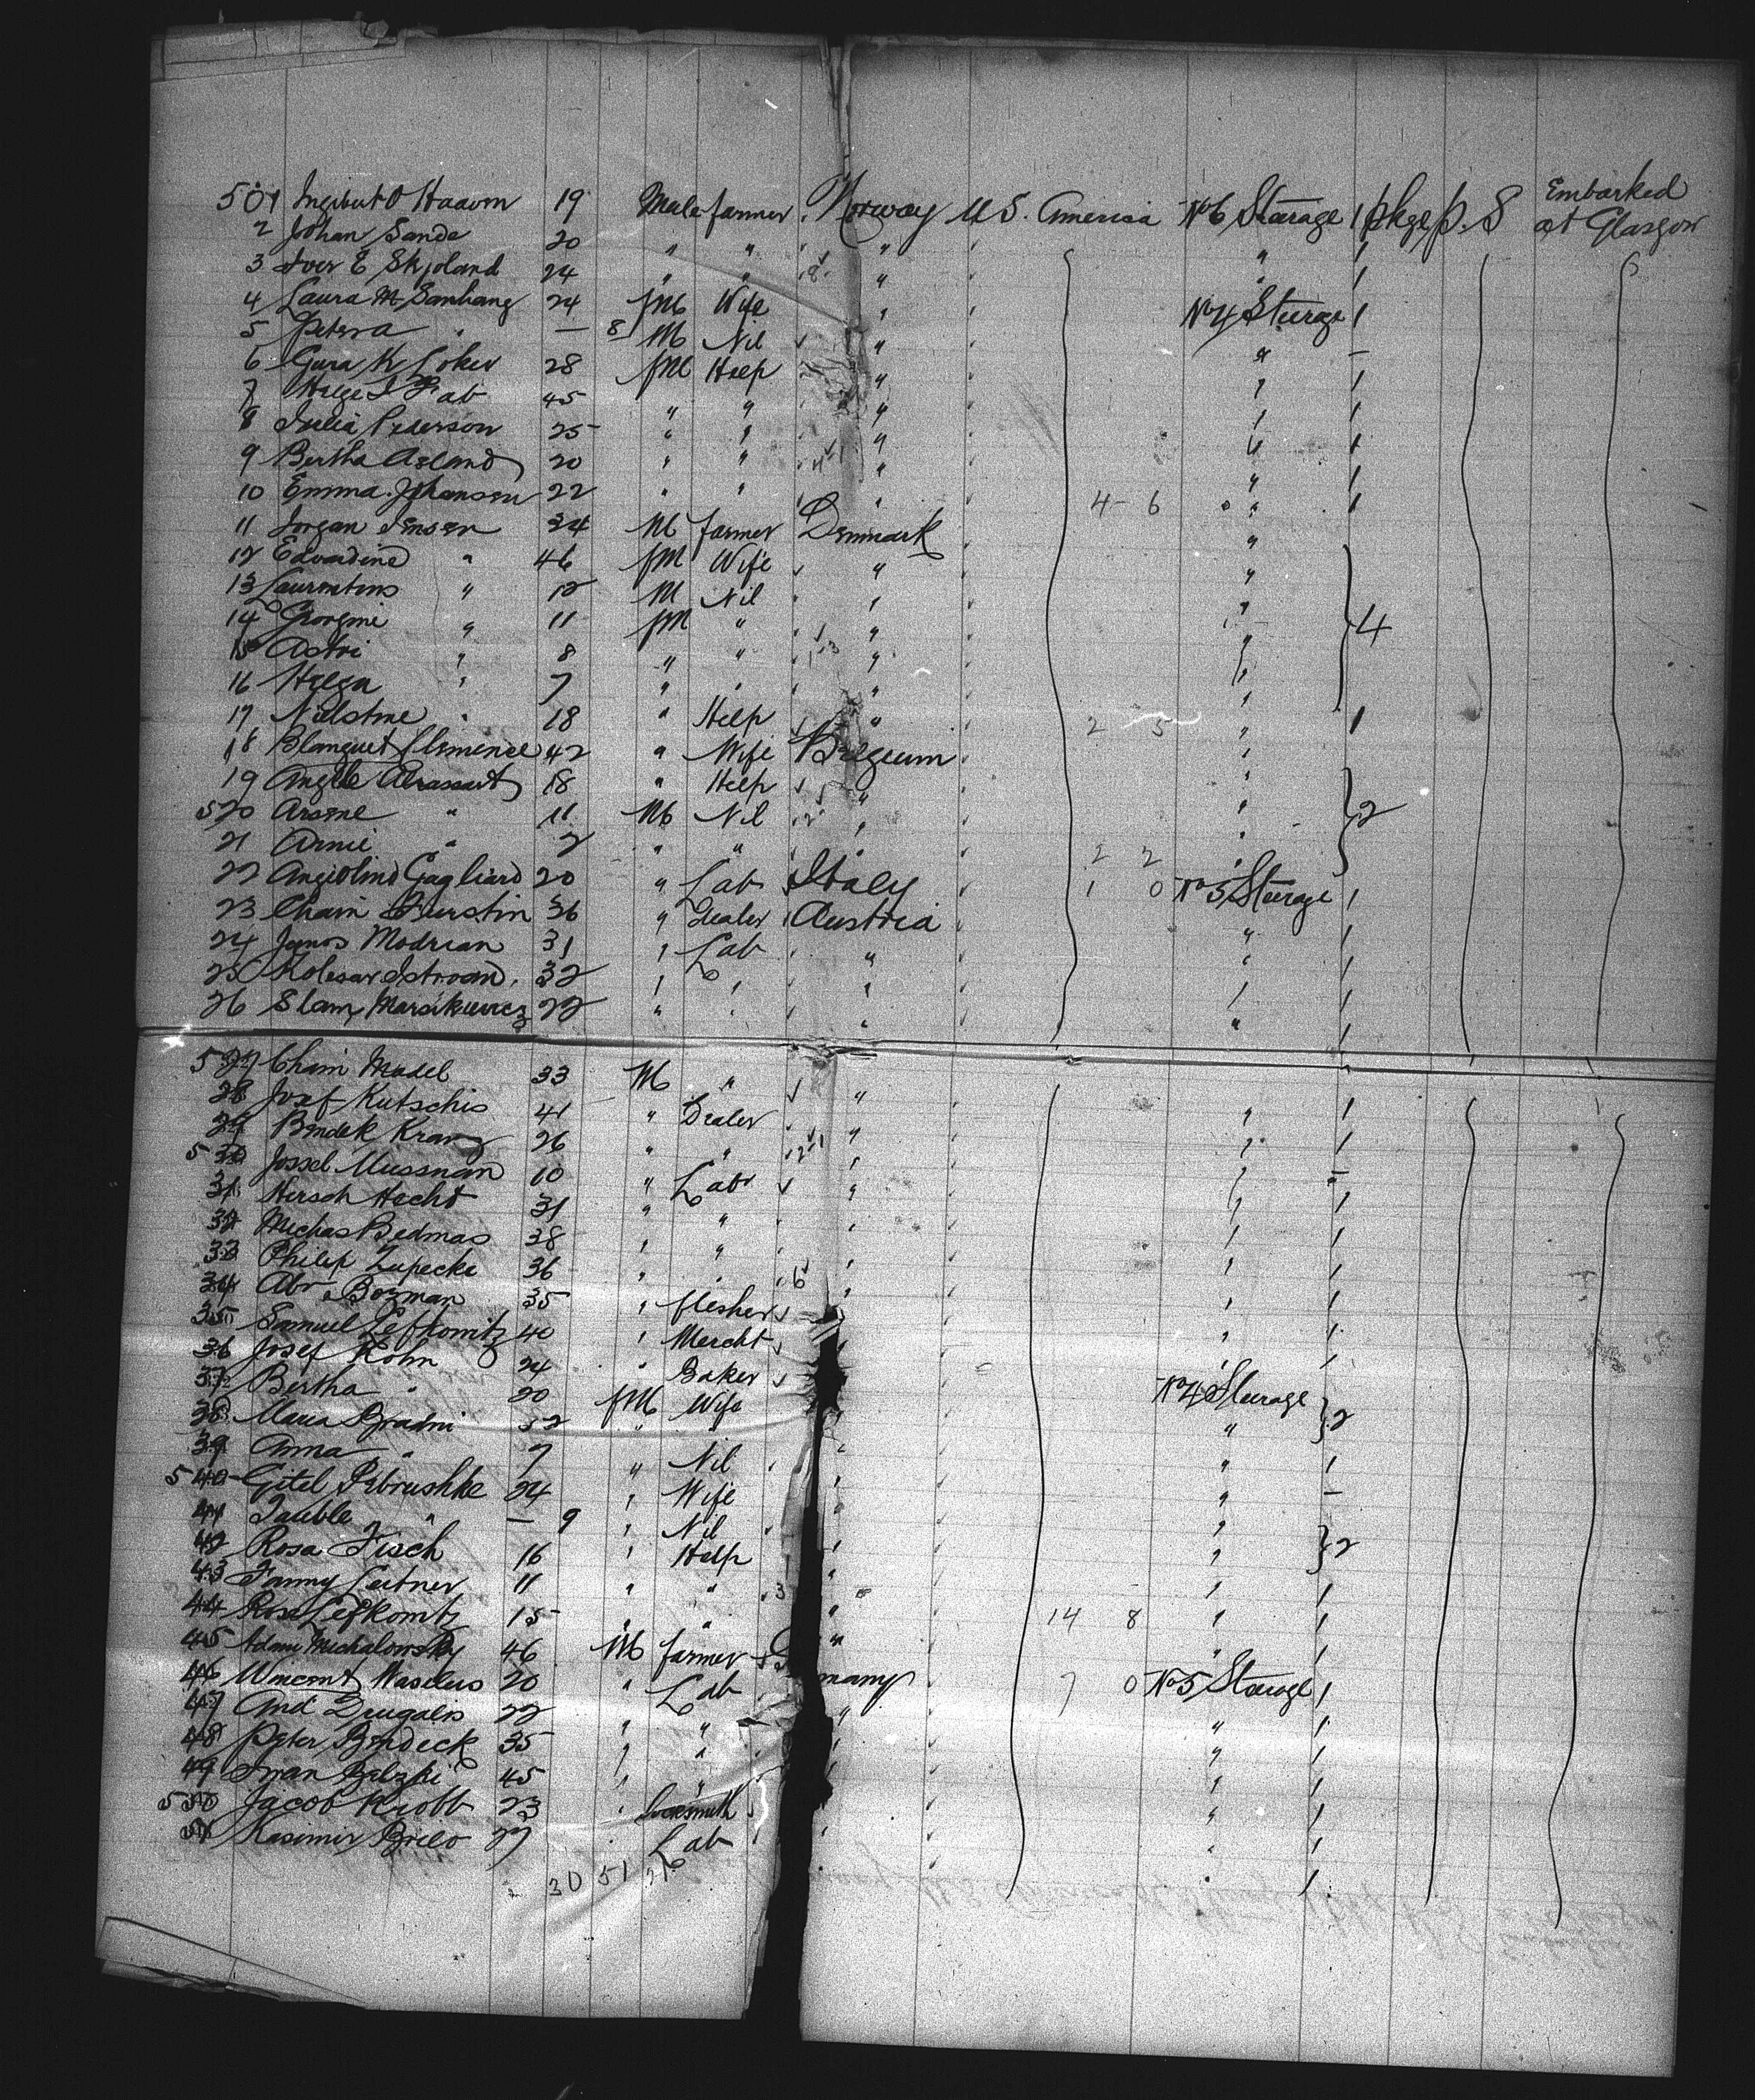 501 Ingebret O Haavm 19 Male farmer Norway U S. America No 6 Steerage 1 pkge P. S Embarked at Glasgow
2 Johan Sande 20 " " " " 1
3 Iver E Skjoland 24 " " " " 1
4 Laura M Sanhang 24 fM Wife " No 4 Steerage 1
5 Petera " — 8 M Nil " " –
6 Gura K Loker 28 fM Help " " 1
7 Helge I 45 " " " " 1
8 Julia Pederson 25 " " " " 1
9 Bertha Asland 20 " " " " 1
10 Emma Johansen 22 " " " 4 - 6 " 1
11 Jorgan Jensen 34 M farmer Denmark "
12 Edvardine " 46 fM Wife " "
13 Laurentins " 12 M Nil " "
14 Georgine " 11 fM " " " 4
15 Astri " 8 " " " "
16 Helga " 7 " " " "
17 Nielstine " 18 " Help " 2 5 " 1
18 Blanquet Clemence 42 " Wife Belgium "
19 Angele Abrassart 18 " Help " "
520 Arsene " 11 M Nil " " 2
21 Arnie " 2 " " 2 2 "
22 Angiolino Gagliard 20 " Lab Italy 1 0 No 5 Steerage 1
23 Chain Burstin 36 " Dealer Austria " 1
24 Janos Modrian 31 " Lab " " 1
25 Kolesar Istvan 32 " " " " 1
26 Slam Marsikievicz 22 " " " " 1
527 Chaim Madel 33 M " " " 1
28 Josef Kutschis 41 " Dealer " " 1
29 Bendek Kranz 26 " " " " 1
530 Jossel Mussman 10 " Labr " " –
31 Hersch Hecht 31 " " " " 1
32 Michas Bedmas 38 " " " " 1
33 Philip Zupecke 36 " " " " 1
34 Abr. Bozman 35 " flesher " " 1
35 Samuel Lefkowitz 40 " Mercht " " 1
36 Josef Kohn 24 " Baker No 4 Steerage
37 Bertha " 20 fM Wife " 2
38 Maria Bradni 32 " " " " 1
39 Anna " 7 " Nil " " –
540 Gitel Pebrushke 24 " Wife " "
41 Tauble " — 9 " Nil " " 2
42 Rosa Fisch 16 " Help " " 1
43 Fanny Leitner 11 " " " " 1
44 Rosa Lefkowitz 15 " " " 14 8 " 1
45 Adam Michalowsky 46 M farmer Germany 7 0 No 5 Steerage 1
46 Wincent Waselus 20 " Lab " " 1
47 And Drugalis 22 " " " " 1
48 Peter Bendeck 35 " " " " 1
49 Iwan Belzki 45 " " " " 1
550 Jacob Krobb 23 " Locksmith " " 1
51 Kasimir Brielo 27 " Lab " " 1
30 51 21